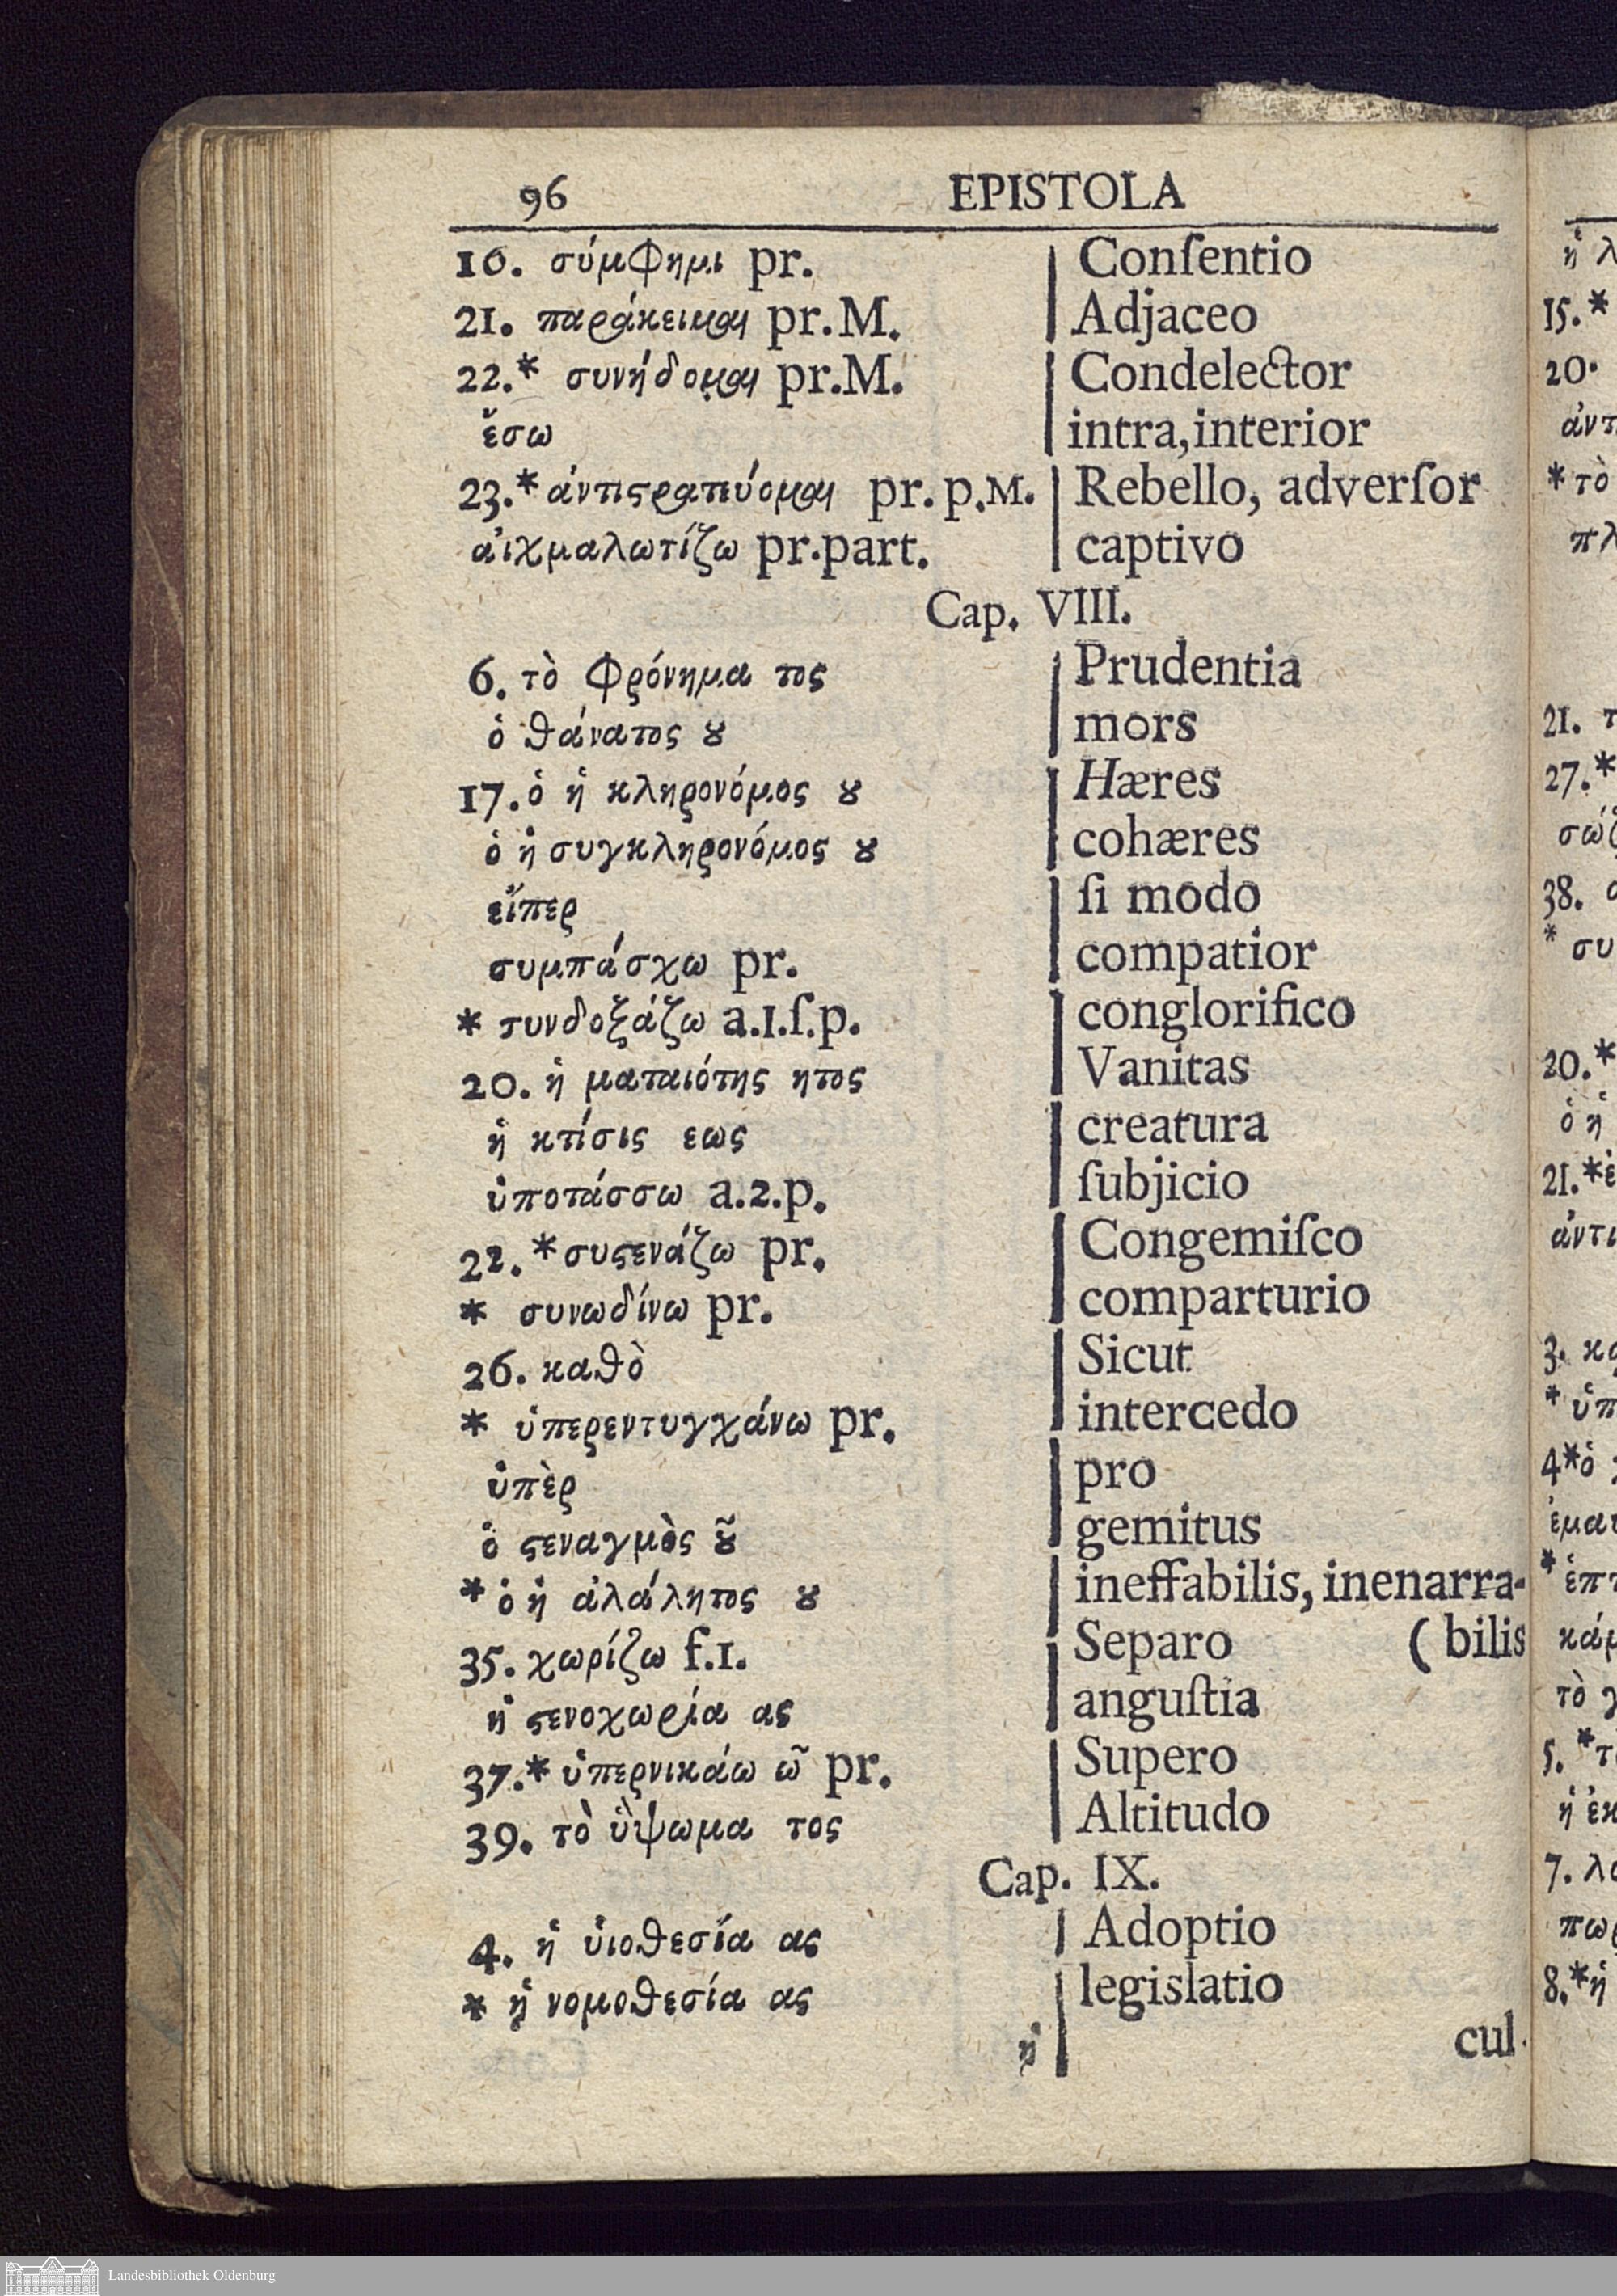 96 EPISTOLA
16. σύμφημι pr. | Conſentio
21. παράκειμαι pr.M. | Adjaceo
22.* συνήδομαι pr.M. | Condelector
ἔσω | intra,interior
23.* ἀντιϛρατεύομαι pr.p.M. | Rebello, adverſor
αἰχμαλωτίζω pr.part. | captivo
Cap. VIII.
6. τὸ φρόνημα τος | Prudentia
ὁ θάνατος ȣ | mors
17. ὁ ἡ κληρονόμος ȣ | Hæres
ὁ ἡ συγκληρονόμος ȣ | cohæres
εἴπερ | ſi modo
συμπάσχω pr. | compatior
* τυνδοξάζω a.1.ſ.p. | conglorifico
20. ἡ ματαιότης ητος | Vanitas
ἡ κτίσις εως | creatura
ὑποτάσσω a.2.p. | ſubjicio
22. * συϛενάζω pr. | Congemiſco
* συνωδίνω pr. | comparturio
26. καθὸ | Sicut
* ὑπερεντυγχάνω pr. | intercedo
ὑπὲρ | pro
ὁ ϛεναγμὸς ȣ͂ | gemitus
* ὁ ἡ ἀλάλητος ȣ | ineffabilis, inenarra-
35. χωρίζω f.1. | Separo ( bilis
ἡ ϛενοχωρία ας | anguſtia
37.* ὑπερνικάω ῶ pr. | Supero
39. τὸ ὕψωμα τος | Altitudo
Cap. IX.
4. ἡ ὑιοθεσία ας | Adoptio
* ἡ νομοθεσία ας | legislatio
ἡ | cul-
ἡ λ
15.*
20.
ἀντ
* τὸ
πλ
21. τ
27.*
σώζ
38.
* συ
20.*
ὁ ἡ
21.*ἐ
ἀντι
3. κα
* ὑπ
4*ὁ
ἐμαυ
* ἐπτ
κάμ
τὸ γ
5. *τ
ἡ ἐκ
7. λ
πωρ
8.*ἡ
Landesbibliothek Oldenburg